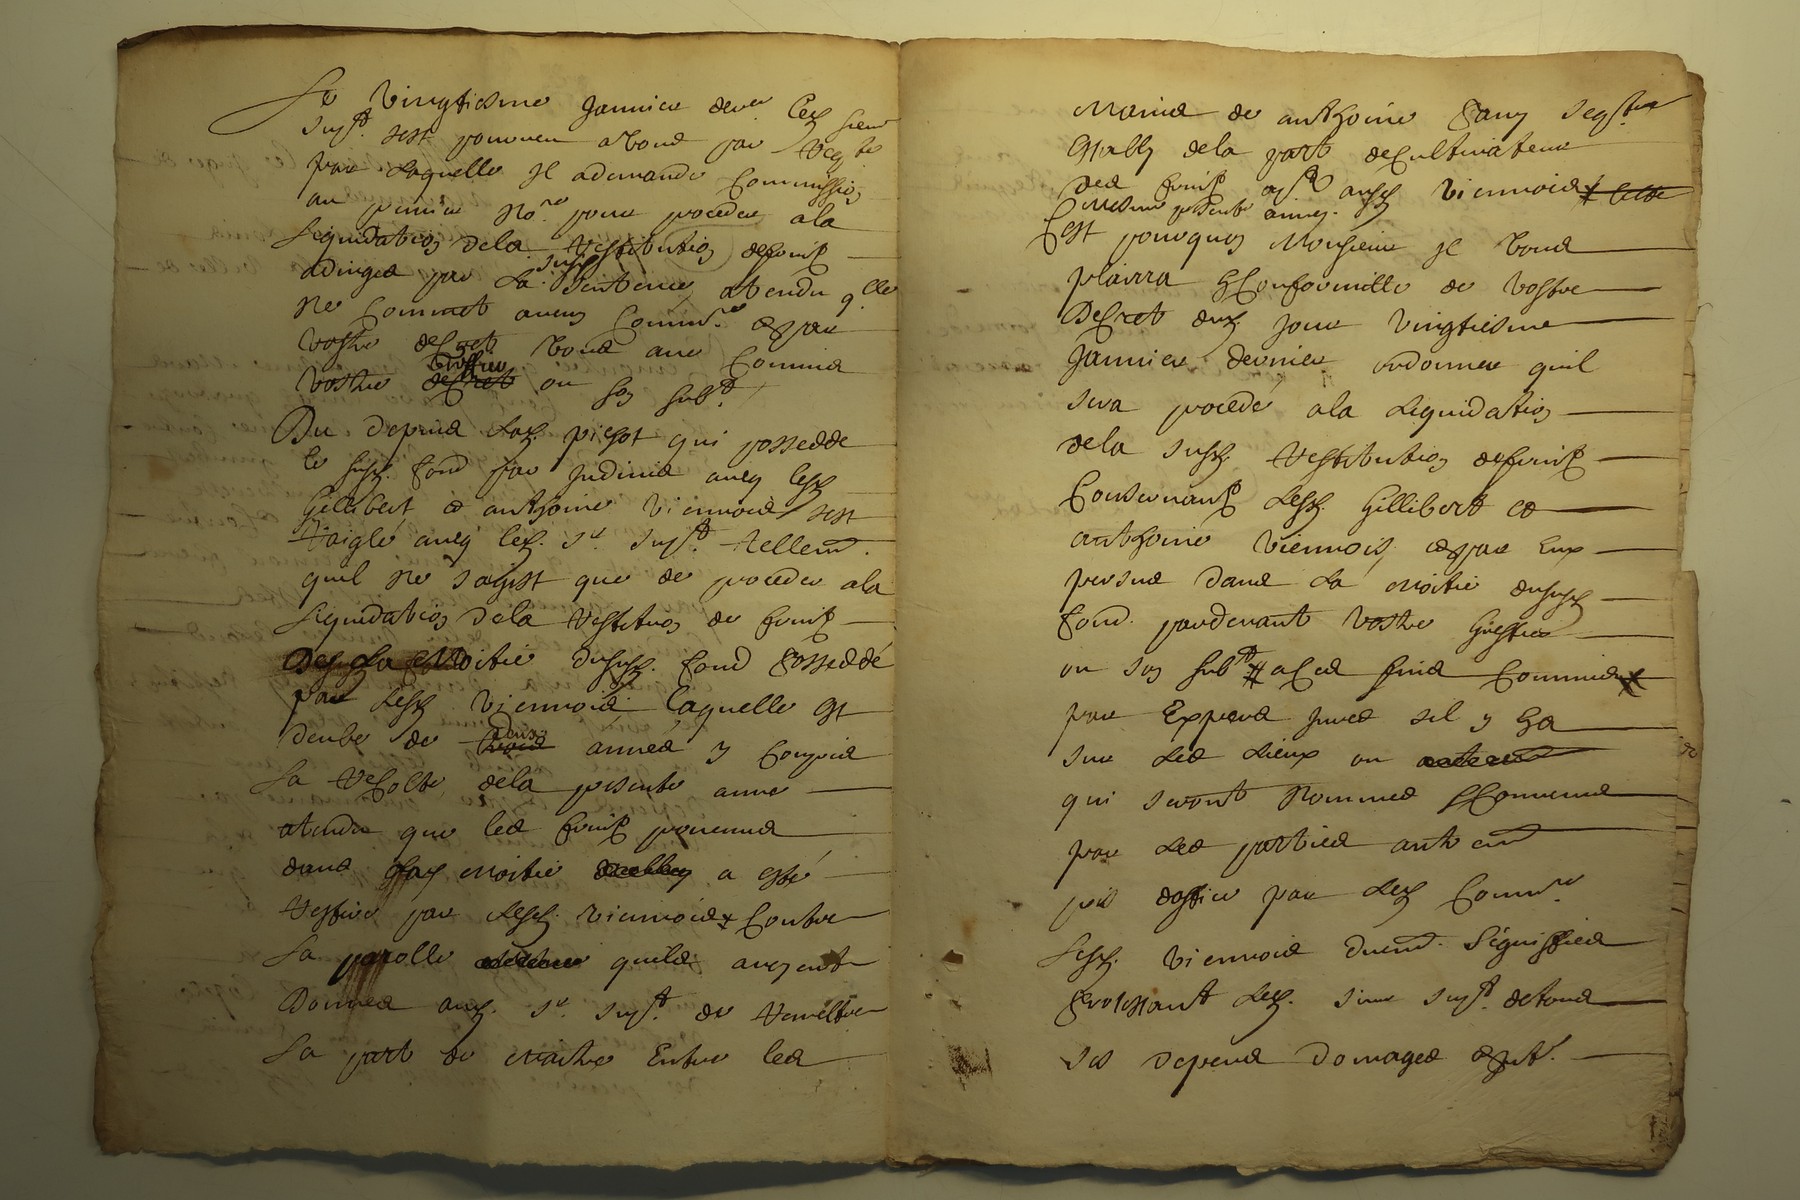 Le vingtiesme Janvier der.er led. sieur
sup.t sest pourveu a vous par req.te
par laquelle Il a demandé commission
au premier No.re pour proceder a la
liquidation de la restitution de fruits
adjuges par la susd. sentence, atendu q.lle
ne commet aucun comm.re et par
vostre decret vous aves commis
vostre greffier ou son subt.
Du depuis lad. pieçot qui possedde
le susd. fond par indivis aveq lesd.
Gillibert et anthoine viennois sest
reiglé aveq led. s.r sup.t tellem.t
quil ne sagist que de proceder a la
liquidation de la restituon de fruits
de la moitié dususd. fond possedé
par lesd. viennois laquelle est
deube de deux années y compris
la recolte de la presente anné
atendu que les fruits provenus
dans lad. moitié a esté
retiré par lesd. viennois contre
la parolle quils avoient
donnes aud. s.r sup.t de remettre
la part de maitre entre les
mains de anthoine
estably de la part de cultivateur
des fruits ausd. viennois
la mesme presente année.
C'est pourquoy Monsieur Il vous
plairra en conformitté de vostre
Decret dud. jour vingtiesme
Janvier dernier ordonner quil
sera procedé a la liquidation
de la susd. restitution de fruits
consernant lesd. Gillibert et
anthoine viennois, et par eux
persus dans la moitié dususd.
fond. pardevant vostre Greffier
ou son subt a ces fins commis
par Expers jures sil y ha
sur les lieux ou
qui seront nommes et convenus
par les parties autrem.t
pris doffice par led. Comm.re
lesd. viennois duem.t signiffiés
protestant led. sieur sup.t de tous
ses depens domages et int.